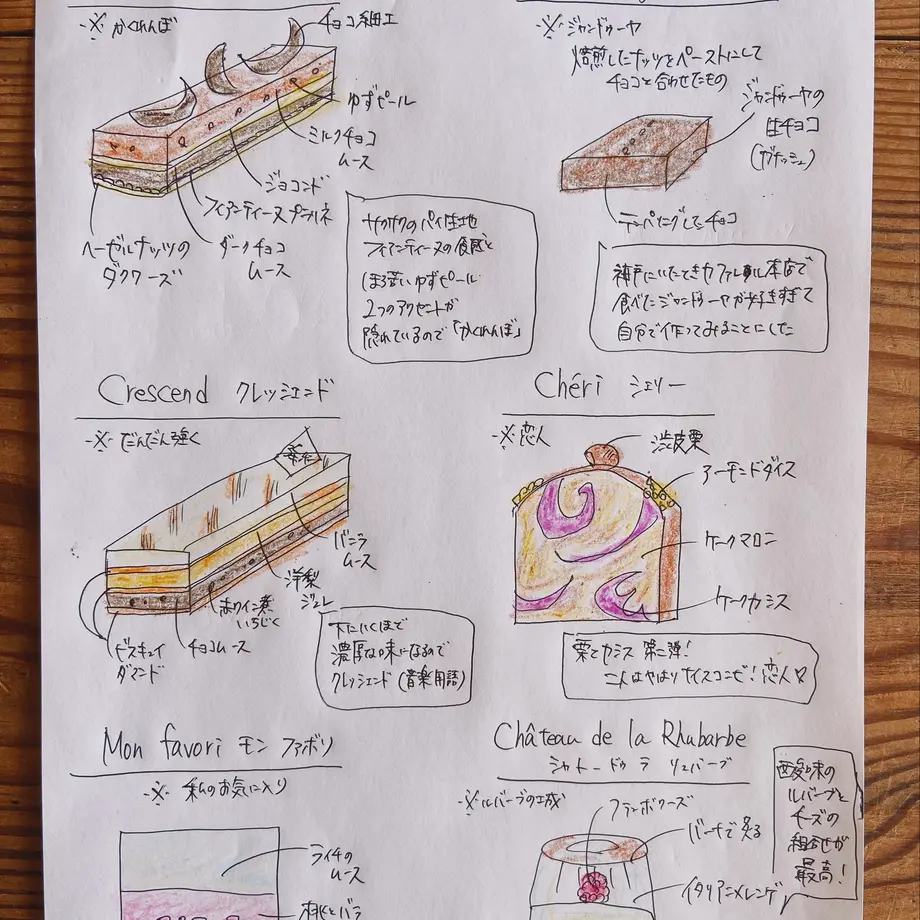 ※かくれんぼ
チョコ細工
ゆずピール
ミルクチョコ
ムース
ジョコンド
フィアンティーヌプラリネ
ダークチョコ
ムース
ヘーゼルナッツの
ダクワーズ
サクサクのパイ生地
フィアンティーヌの食感と
ほろ苦いゆずピール
2つのアクセントが
隠れているので「かくれんぼ」
※ジャンドゥーヤ
焙煎したナッツをペーストにして
チョコと合わせたもの
ジャンドゥーヤの
生チョコ
(ガナッシュ)
テーパリングしたチョコ
神戸にいたときカファレル本店で
食べたジャンドゥーヤが好きすぎて
自分で作ってみることにした
Crescend クレッシェンド
※だんだん強く
バニラ
ムース
洋梨
ジュレ
赤ワイン煮
いちじく
チョコムース
ビスキュイ
ダマンド
下にいくほど
濃厚な味になるので
クレッシェンド(音楽用語)
Chéri シェリー
※恋人
渋皮栗
アーモンドダイス
ケークマロン
ケークカシス
栗とカシス 第二弾!
二人はやはりナイスコンビ!恋人♡
Mon favori モン ファボリ
※私のお気に入り
ライチの
ムース
桃とバラ
Château de la Rhubarbe
シャトー ドゥ ラ リュバーブ
※ルバーブの城
フランボワーズ
バーナーで炙る
イタリアンメレンゲ
酸味の
ルバーブと
チーズの
組合せが
最高!